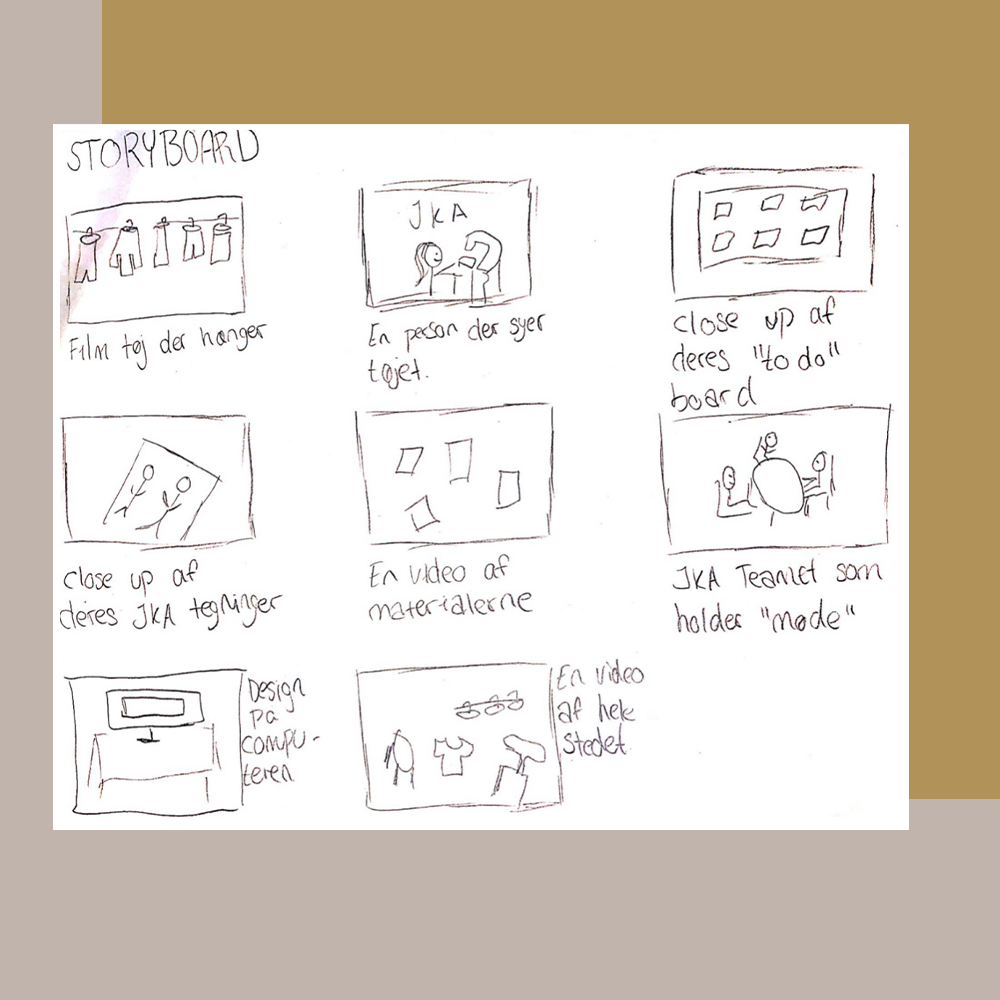 STORYBOARD
Film tøj der hænger
JKA
En person der syer
tøjet.
close up af
deres "to do"
board
close up af
deres JKA tegninger
En video af
materialerne
JKA Teamet som
holder "møde"
Design
på
compu-
teren
En video
af hele
stedet